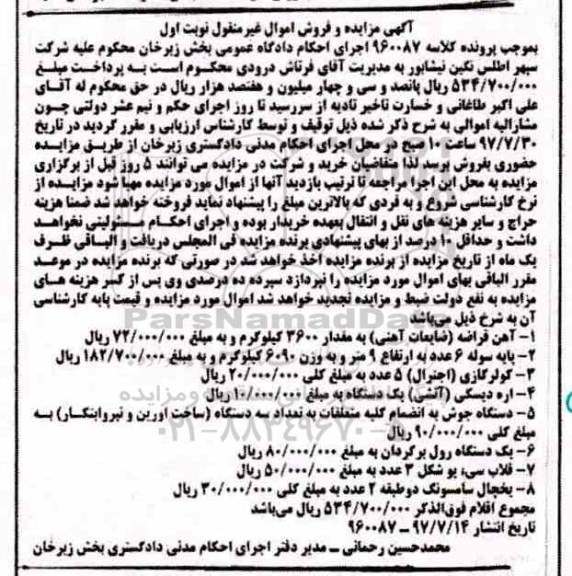 آگهی مزایده و فروش اموال غیرمنقول نوبت اول
بموجب پرونده کلاسه ۹۶۰۰۸۷ اجرای احکام دادگاه عمومی بخش زبرخان محکوم علیه شرکت
سپهر اطلس نگین نیشابور به مدیریت آقای فرتاش درودی محکوم است به پرداخت مبلغ
۵۳۴/۷۰۰/۰۰۰ ریال پانصد و سی و چهار میلیون و هفتصد هزار ریال در حق محکوم له آقای
علی اکبر طاغانی و خسارت تاخیر تادیه از سررسید تا روز اجرای حکم و نیم عشر دولتی چون
مشارالیه اموالی به شرح ذکر شده ذیل توقیف و توسط کارشناس ارزیابی و مقرر گردید در تاریخ
۹۷/۷/۳۰ ساعت ۱۰ صبح در محل اجرای احکام مدنی دادگستری زبرخان از طریق مزایده
حضوری بفروش برسد لذا متقاضیان خرید و شرکت در مزایده می توانند ۵ روز قبل از برگزاری
مزایده به محل این اجرا مراجعه تا ترتیب بازدید آنها از اموال مورد مزایده مهیا شود مزایده از
نرخ کارشناسی شروع و به فردی که بالاترین مبلغ را پیشنهاد نماید فروخته خواهد شد ضمنا هزینه
حراج و سایر هزینه های نقل و انتقال بعهده خریدار بوده و اجرای احکام مسئولیتی نخواهد
داشت و حداقل ۱۰ درصد از بهای پیشنهادی برنده مزایده فی المجلس دریافت و الباقی ظرف
یک ماه از تاریخ مزایده از برنده مزایده اخذ خواهد شد در صورتی که برنده مزایده در موعد
مقرر الباقی بهای اموال مورد مزایده را نپردازد سپرده ده درصدی وی پس از کسر هزینه های
مزایده به نفع دولت ضبط و مزایده تجدید خواهد شد اموال مورد مزایده و قیمت پایه کارشناسی
آن به شرح ذیل می‌باشد
۱- آهن قراضه (ضایعات آهنی) به مقدار ۳۶۰۰ کیلوگرم و به مبلغ ۷۲/۰۰۰/۰۰۰ ریال
۲- پایه سوله ۶ عدد به ارتفاع ۹ متر و به وزن ۶۰۹۰ کیلوگرم و به مبلغ ۱۸۲/۷۰۰/۰۰۰ ریال
۳- کولرگازی (اجنرال) ۵ عدد به مبلغ کلی ۲۰/۰۰۰/۰۰۰ ریال
۴- اره دیسکی (آتشی) یک دستگاه به مبلغ ۱۰/۰۰۰/۰۰۰ ریال
۵- دستگاه جوش به انضمام کلیه متعلقات به تعداد سه دستگاه (ساخت اورین و نیرواینکار) به
مبلغ کلی ۹۰/۰۰۰/۰۰۰ ریال
۶- یک دستگاه رول برگردان به مبلغ ۸۰/۰۰۰/۰۰۰ ریال
۷- قلاب سی، یو شکل ۳ عدد به مبلغ ۵۰/۰۰۰/۰۰۰ ریال
۸- یخچال سامسونگ دوطبقه ۲ عدد به مبلغ کلی ۳۰/۰۰۰/۰۰۰ ریال
مجموع اقلام فوق‌الذکر ۵۳۴/۷۰۰/۰۰۰ ریال می‌باشد
تاریخ انتشار ۹۷/۷/۱۴ - ۹۶۰۰۸۷
محمدحسین رحمانی - مدیر دفتر اجرای احکام مدنی دادگستری بخش زبرخان
ParsNamadData
۰۲۱-۸۸۳۴۹۶۷۰